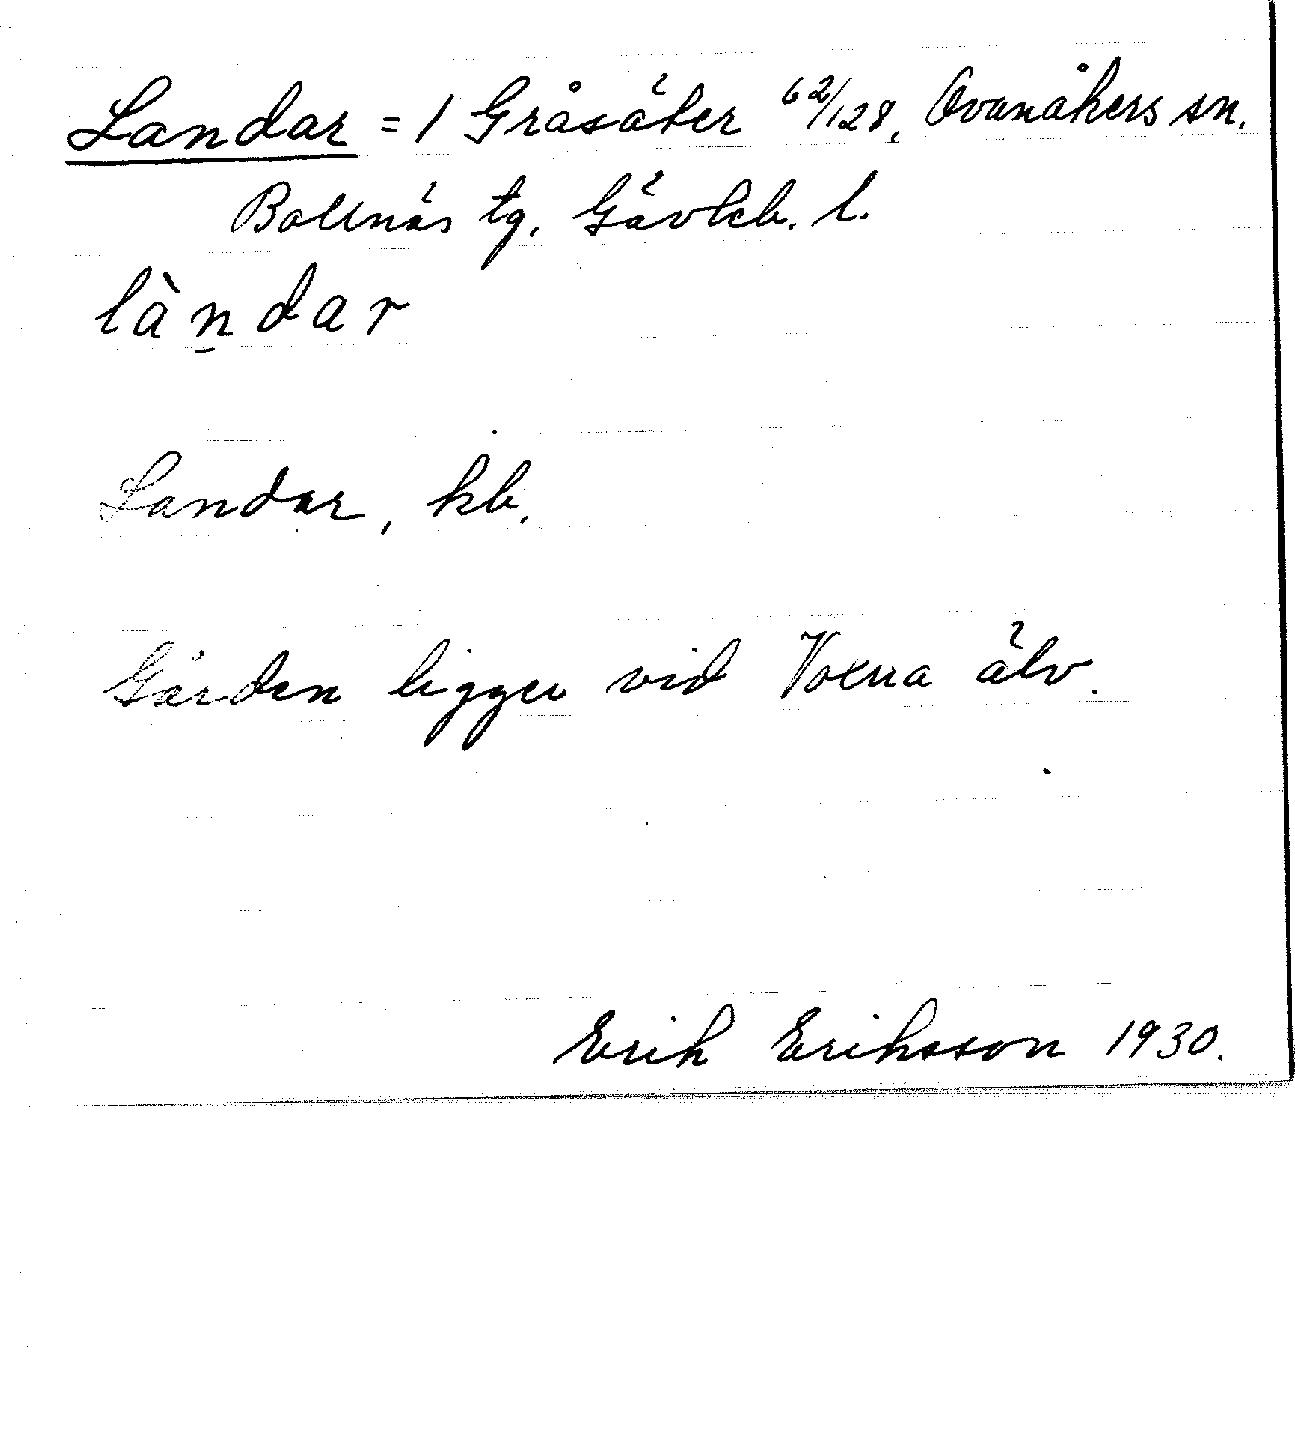 Landar = 1 Gråsäter 62/128, Ovanåkers sn.
Bollnäs tg. Gävleb. l.
làn̠dar
Landar, kb.
Gården ligger vid Voxna älv.
Erik Eriksson 1930.